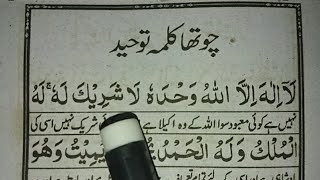 چوتھا کلمہ توحید
لَآ اِلٰهَ اِلَّا اللّٰهُ وَحْدَهٗ لَا شَرِيْكَ لَهٗ لَهُ
نہیں ہے کوئی معبود سوا اللہ کے وہ اکیلا ہے شریک نہیں اسی کی
الْمُلْكُ وَلَهُ الْحَمْدُ يُمِيْتُ وَهُوَ